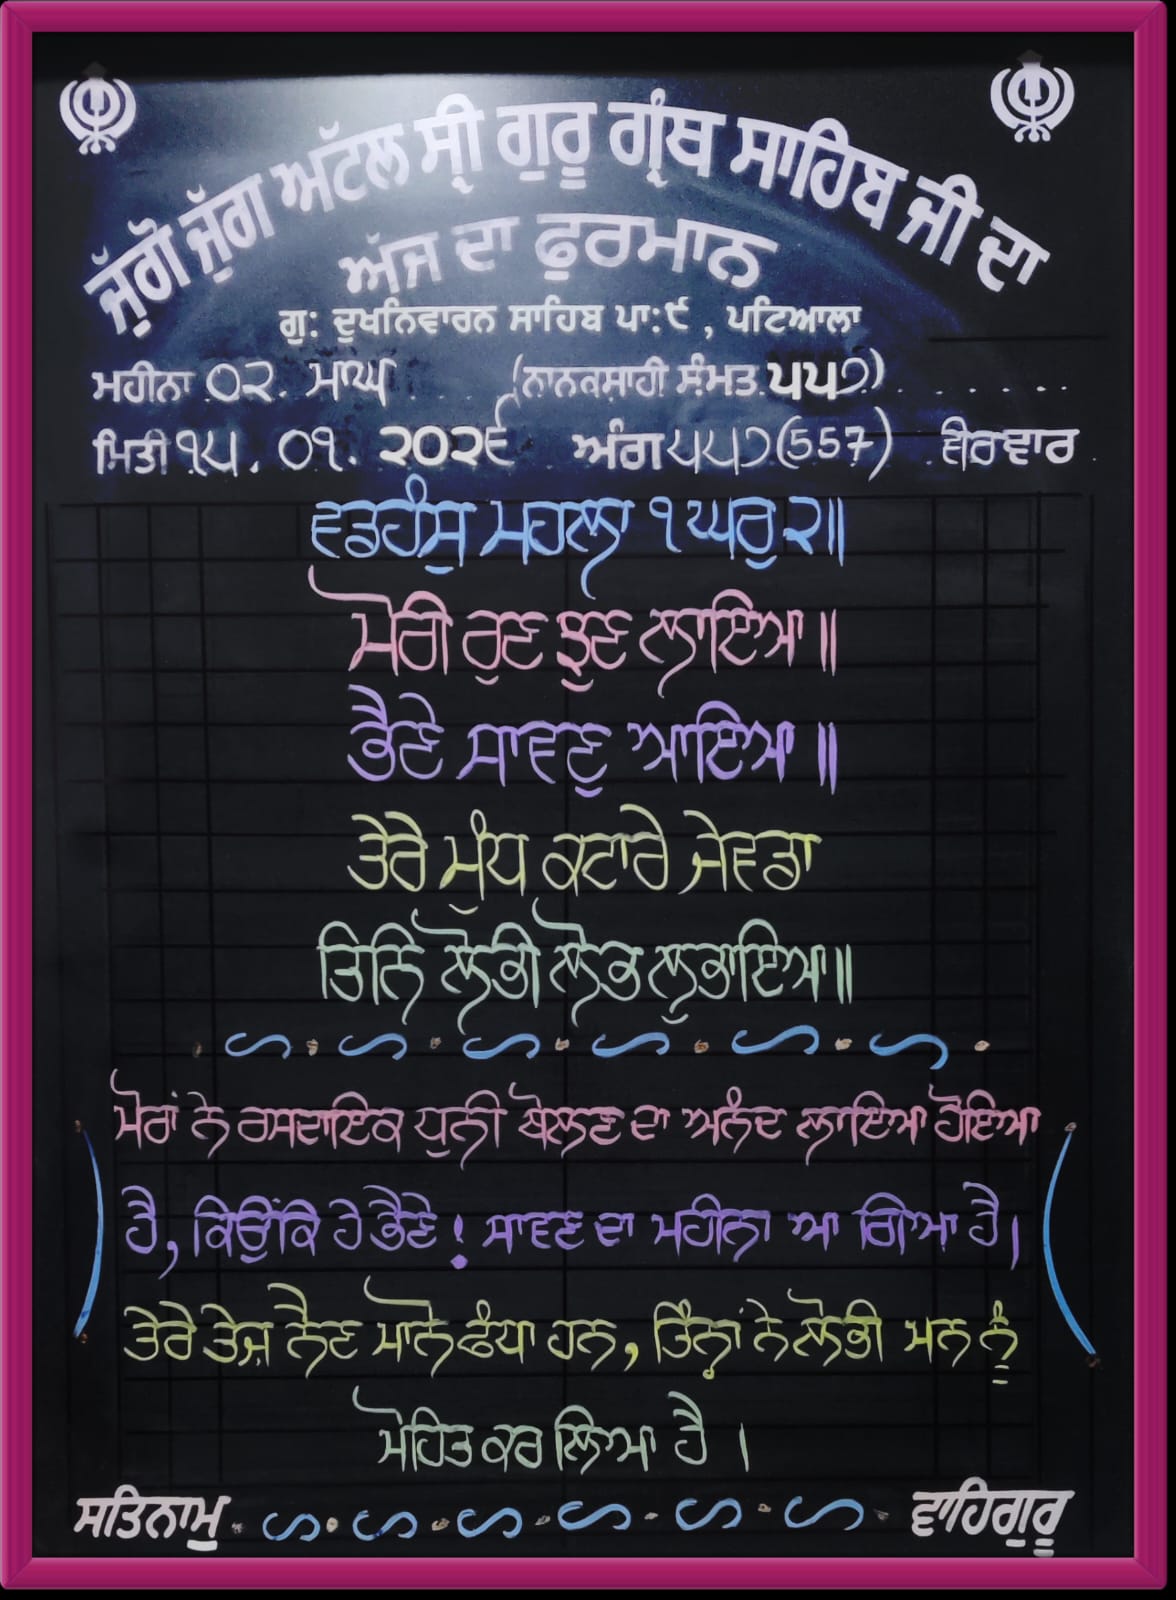 ਜੁੱਗੋ ਜੁੱਗ ਅਟੱਲ ਸ੍ਰੀ ਗੁਰੂ ਗ੍ਰੰਥ ਸਾਹਿਬ ਜੀ ਦਾ
ਅੱਜ ਦਾ ਫੁਰਮਾਨ
ਗੁ: ਦੁਖਨਿਵਾਰਨ ਸਾਹਿਬ ਪਾ:੯ , ਪਟਿਆਲਾ
ਮਹੀਨਾ ੦੨. ਮਾਘ (ਨਾਨਕਸ਼ਾਹੀ ਸੰਮਤ ੫੫੭)
ਮਿਤੀ ੧੫. ੦੧. ੨੦੨੬ ਅੰਗ ੫੫੭(557) ਵੀਰਵਾਰ
ਵਡਹੰਸੁ ਮਹਲਾ ੧ ਘਰੁ ੨॥
ਮੋਰੀ ਰੁਣ ਝੁਣ ਲਾਇਆ॥
ਭੈਣੇ ਸਾਵਣੁ ਆਇਆ॥
ਤੇਰੇ ਮੁੰਧ ਕਟਾਰੇ ਜੇਵਡਾ
ਤਿਨਿ ਲੋਭੀ ਲੋਭ ਲੁਭਾਇਆ॥
ਮੋਰਾਂ ਨੇ ਰਸਦਾਇਕ ਧੁਨੀ ਬੋਲਣ ਦਾ ਅਨੰਦ ਲਾਇਆ ਹੋਇਆ
ਹੈ, ਕਿਉਂਕਿ ਹੇ ਭੈਣੇ! ਸਾਵਣ ਦਾ ਮਹੀਨਾ ਆ ਗਿਆ ਹੈ।
ਤੇਰੇ ਤੇਜ਼ ਨੈਣ ਮਾਨੋ ਫੰਧਾ ਹਨ, ਤਿੰਨ੍ਹਾਂ ਨੇ ਲੋਭੀ ਮਨ ਨੂੰ
ਮੋਹਿਤ ਕਰ ਲਿਆ ਹੈ।
ਸਤਿਨਾਮੁ ਵਾਹਿਗੁਰੂ